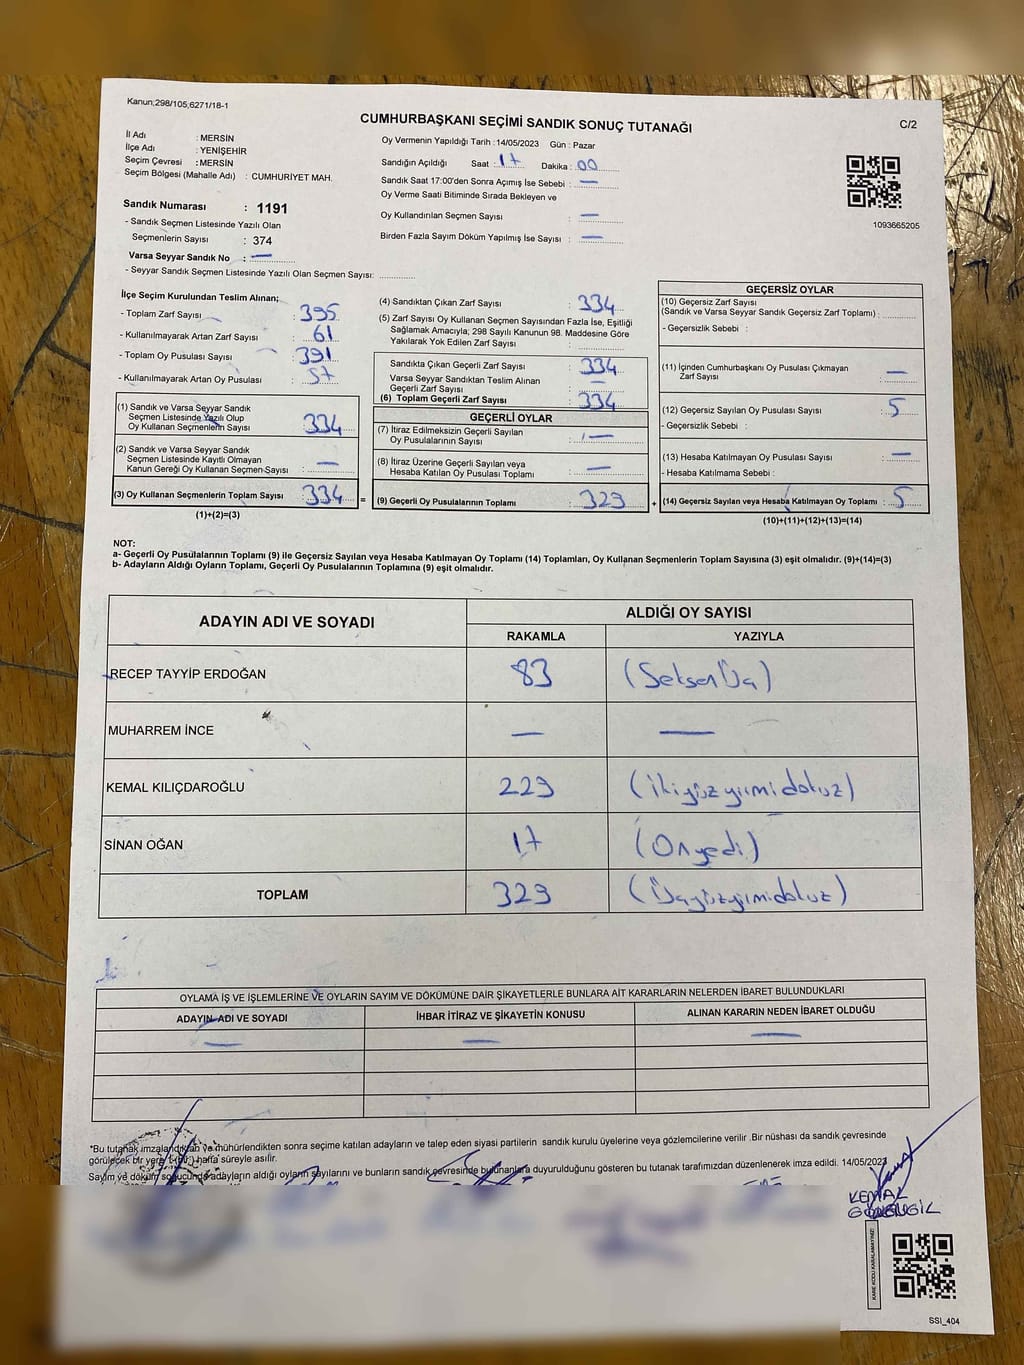 Kanun;298/105;6271/18-1
CUMHURBAŞKANI SEÇİMİ SANDIK SONUÇ TUTANAĞI
C/2
İl Adı : MERSİN
İlçe Adı : YENİŞEHİR
Seçim Çevresi : MERSİN
Seçim Bölgesi (Mahalle Adı) : CUMHURİYET MAH.
Oy Vermenin Yapıldığı Tarih : 14/05/2023 Gün : Pazar
Sandığın Açıldığı Saat : 17 Dakika : 00
Sandık Saat 17:00'den Sonra Açımış İse Sebebi : —
Oy Verme Saati Bitiminde Sırada Bekleyen ve
Oy Kullandırılan Seçmen Sayısı : —
Birden Fazla Sayım Döküm Yapılmış İse Sayısı : —
1093665205
Sandık Numarası : 1191
- Sandık Seçmen Listesinde Yazılı Olan
Seçmenlerin Sayısı : 374
Varsa Seyyar Sandık No : —
- Seyyar Sandık Seçmen Listesinde Yazılı Olan Seçmen Sayısı:
İlçe Seçim Kurulundan Teslim Alınan;
- Toplam Zarf Sayısı : 395
- Kullanılmayarak Artan Zarf Sayısı : 61
- Toplam Oy Pusulası Sayısı : 391
- Kullanılmayarak Artan Oy Pusulası : 57
(1) Sandık ve Varsa Seyyar Sandık
Seçmen Listesinde Yazılı Olup
Oy Kullanan Seçmenlerin Sayısı : 334
(2) Sandık ve Varsa Seyyar Sandık
Seçmen Listesinde Kayıtlı Olmayan
Kanun Gereği Oy Kullanan Seçmen Sayısı : —
(3) Oy Kullanan Seçmenlerin Toplam Sayısı : 334 =
(1)+(2)=(3)
(4) Sandıktan Çıkan Zarf Sayısı : 334
(5) Zarf Sayısı Oy Kullanan Seçmen Sayısından Fazla İse, Eşitliği
Sağlamak Amacıyla; 298 Sayılı Kanunun 98. Maddesine Göre
Yakılarak Yok Edilen Zarf Sayısı :
Sandıkta Çıkan Geçerli Zarf Sayısı : 334
Varsa Seyyar Sandıktan Teslim Alınan
Geçerli Zarf Sayısı : —
(6) Toplam Geçerli Zarf Sayısı : 334
GEÇERLİ OYLAR
(7) İtiraz Edilmeksizin Geçerli Sayılan
Oy Pusulalarının Sayısı : —
(8) İtiraz Üzerine Geçerli Sayılan veya
Hesaba Katılan Oy Pusulası Toplamı : —
(9) Geçerli Oy Pusulalarının Toplamı : 329 +
GEÇERSİZ OYLAR
(10) Geçersiz Zarf Sayısı
(Sandık ve Varsa Seyyar Sandık Geçersiz Zarf Toplamı) :
- Geçersizlik Sebebi :
(11) İçinden Cumhurbaşkanı Oy Pusulası Çıkmayan
Zarf Sayısı : —
(12) Geçersiz Sayılan Oy Pusulası Sayısı : 5
- Geçersizlik Sebebi :
(13) Hesaba Katılmayan Oy Pusulası Sayısı : —
- Hesaba Katılmama Sebebi :
(14) Geçersiz Sayılan veya Hesaba Katılmayan Oy Toplamı : 5
(10)+(11)+(12)+(13)=(14)
NOT:
a- Geçerli Oy Pusulalarının Toplamı (9) ile Geçersiz Sayılan veya Hesaba Katılmayan Oy Toplamı (14) Toplamları, Oy Kullanan Seçmenlerin Toplam Sayısına (3) eşit olmalıdır. (9)+(14)=(3)
b- Adayların Aldığı Oyların Toplamı, Geçerli Oy Pusulalarının Toplamına (9) eşit olmalıdır.
ADAYIN ADI VE SOYADI
ALDIĞI OY SAYISI
RAKAMLA YAZIYLA
RECEP TAYYİP ERDOĞAN 83 (SeksenÜç)
MUHARREM İNCE — —
KEMAL KILIÇDAROĞLU 229 (ikiyüzyirmidokuz)
SİNAN OĞAN 17 (Onyedi)
TOPLAM 329 (Üçyüzyirmidokuz)
OYLAMA İŞ VE İŞLEMLERİNE VE OYLARIN SAYIM VE DÖKÜMÜNE DAİR ŞİKAYETLERLE BUNLARA AİT KARARLARIN NELERDEN İBARET BULUNDUKLARI
ADAYIN ADI VE SOYADI İHBAR İTİRAZ VE ŞİKAYETİN KONUSU ALINAN KARARIN NEDEN İBARET OLDUĞU
— — —
*Bu tutanak imzalandıktan ve mühürlendikten sonra seçime katılan adayların ve talep eden siyasi partilerin sandık kurulu üyelerine veya gözlemcilerine verilir .Bir nüshası da sandık çevresinde
görülecek bir yere 1 (bir) hafta süreyle asılır.
Sayım ve döküm sonucunda adayların aldığı oyların sayılarını ve bunların sandık çevresinde bulunanlara duyurulduğunu gösteren bu tutanak tarafımızdan düzenlenerek imza edildi. 14/05/2023
KEMAL
KAREKODU KARALAMAYINIZ!
SSI_404